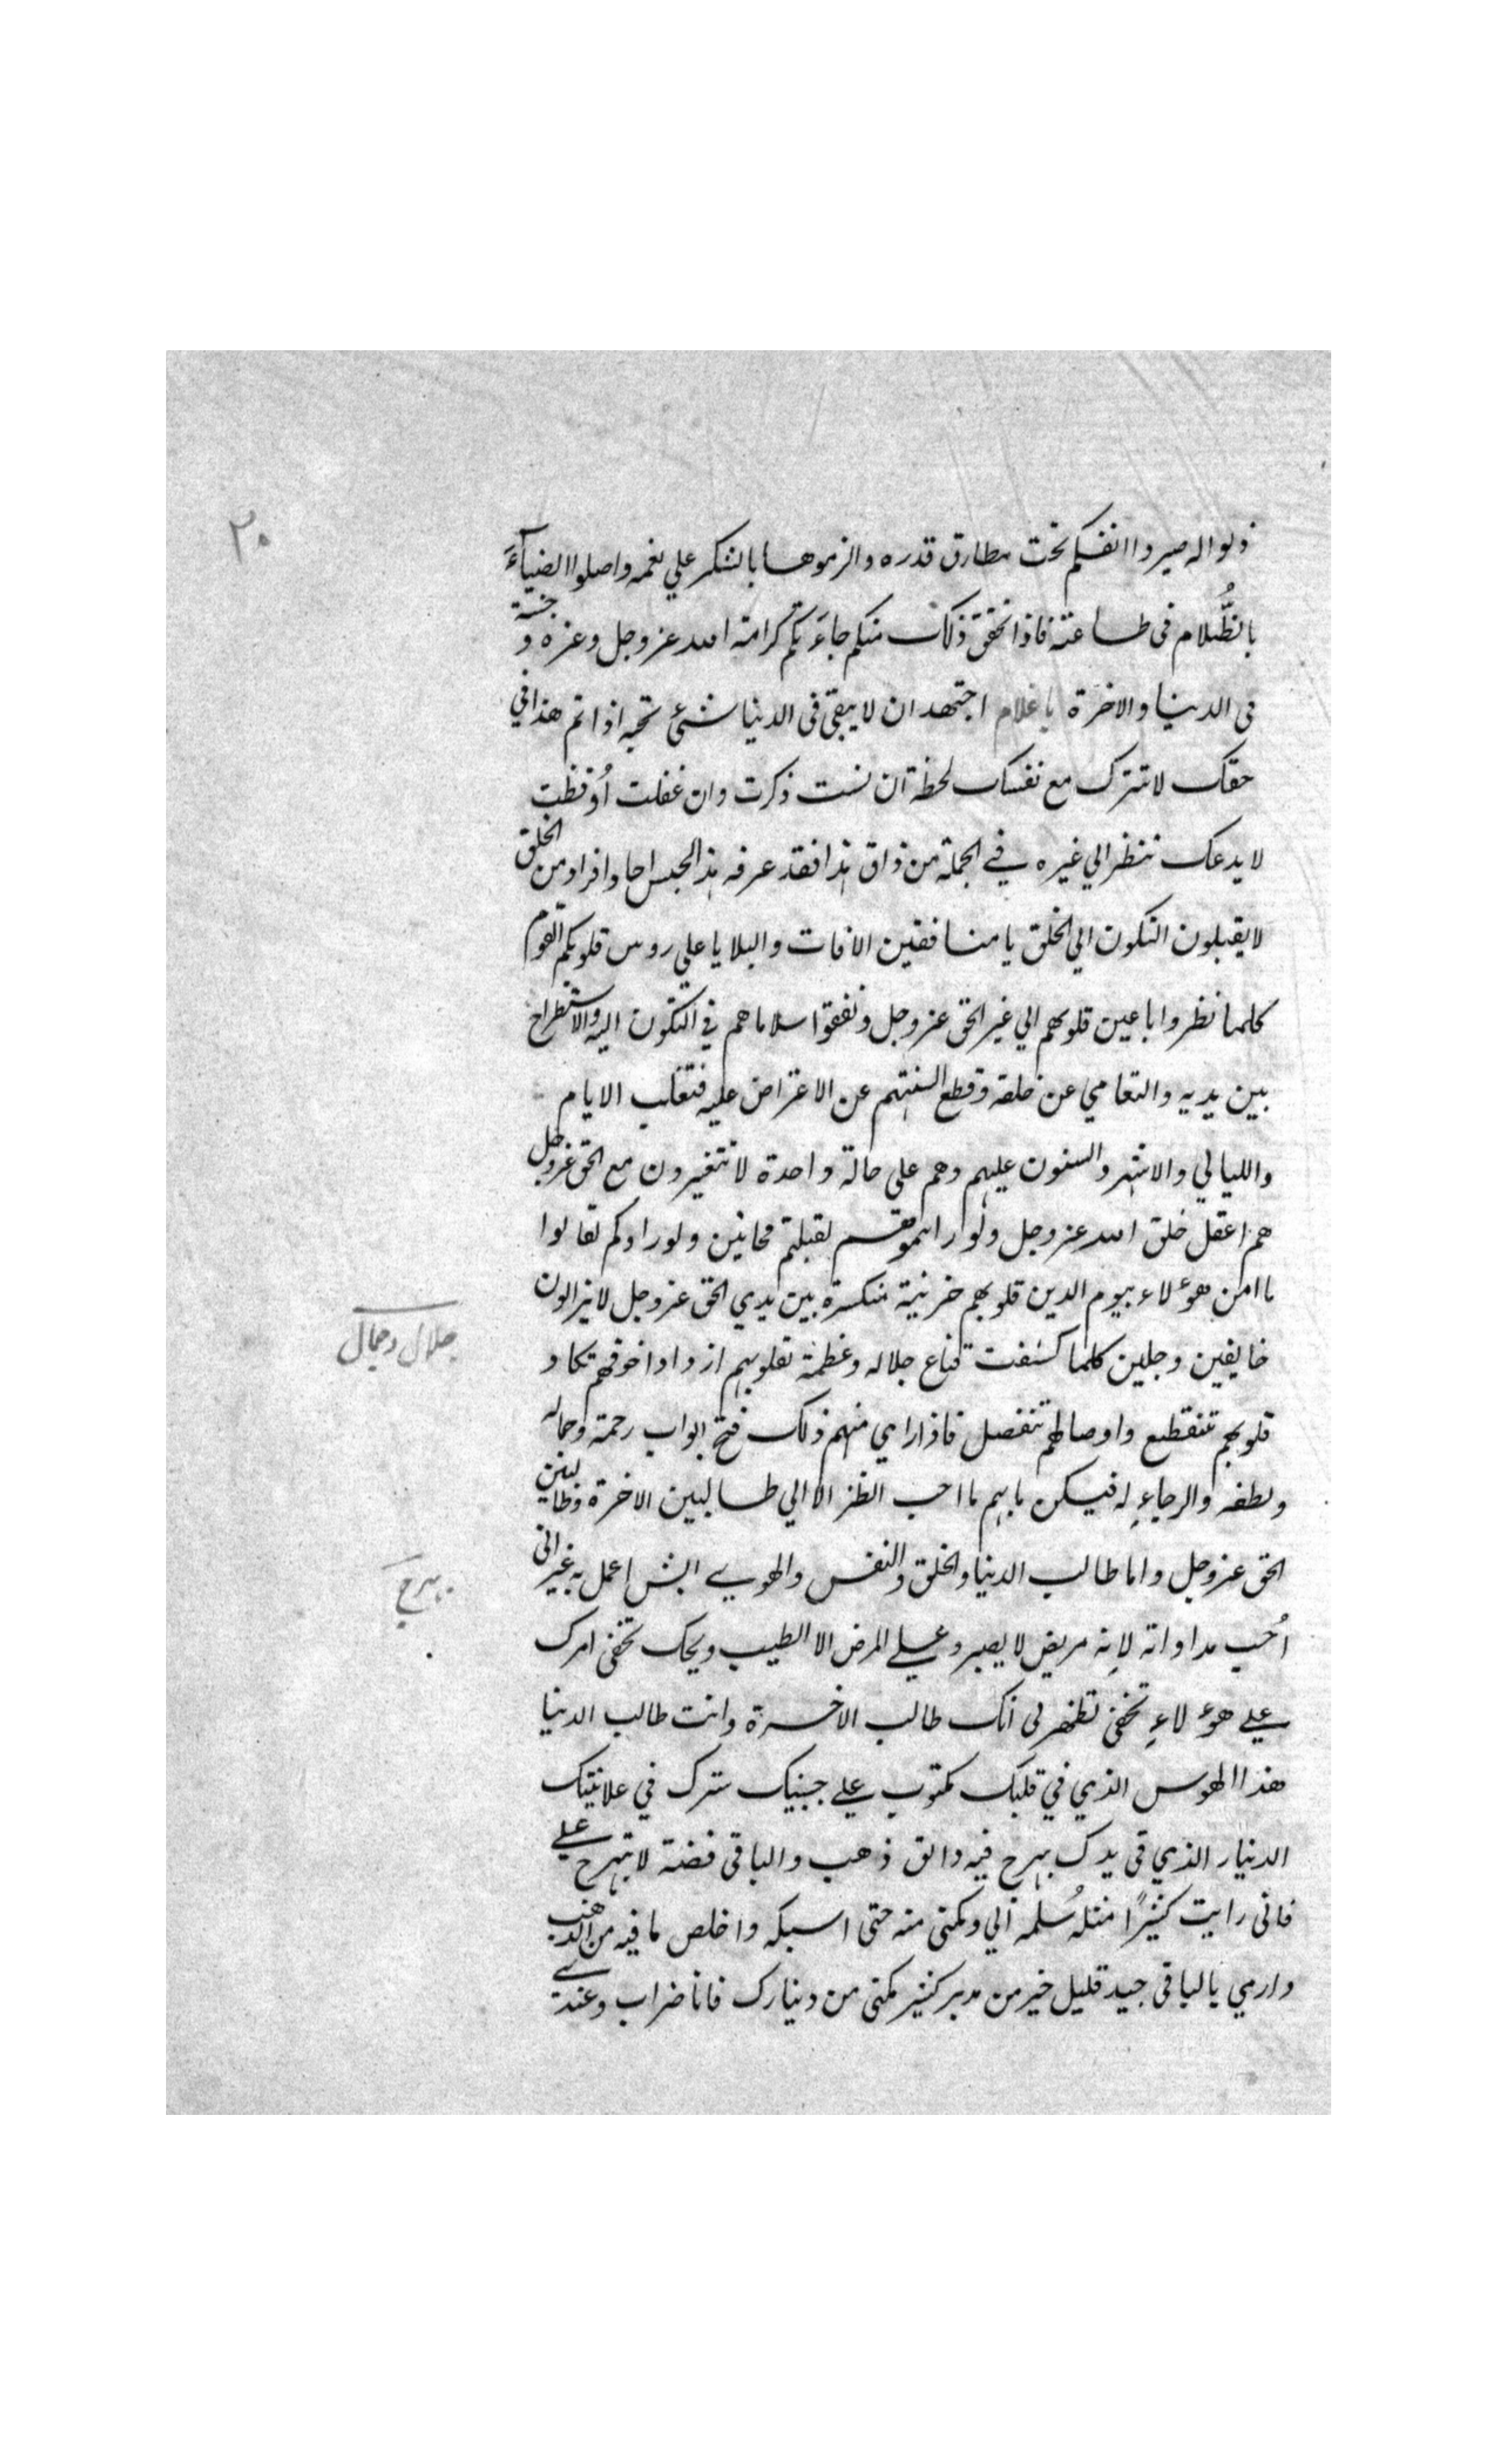 ٢٠
ذلوا له صيروا انفسكم تحت مطارق قدره والزموها بالشكر علي نعمه واصلوا الضيآءَ
بالظُّلام فى طاعته فاذا تحقق ذلك منكم جاءَتكم كرامة الله عز وجل وعزه و جنته
فى الدنيا والاخرة يا غلام اجتهد ان لا يبقى فى الدنيا شئ تحبه اذا تم هذا في
حقك لا تترك مع نفسك لحظة ان نسيت ذكرت وان غفلت أُوقظت
لا يدعك تنظر الي غيره في الجملة من ذاق هذا فقد عرفه هذا الجنس احاد افراد من الخلق
لا يقبلون السكون الي الخلق يا منافقين الافات والبلايا علي روس قلوبكم القوم
كلما نظروا باعين قلوبهم الي غير الحق عز وجل ونفقوا سلاماهم في السكون اليه والاستطراح
بين يديه والتعامي عن خلقه وقطع السنتهم عن الاعتراض عليه فتقلب الايام
والليالي والاشهر والسنون عليهم وهم علي حالة واحدة لا تتغيرون مع الحق عز وجل
هم اعقل خلق الله عز وجل ولو رايتموهم لقلتم مجانين ولو راوكم لقالوا
ما امن هؤلاء بيوم الدين قلوبهم حزينة منكسرة بين يدي الحق عز وجل لا يزالون
خايفين وجلين كلما كشفت قناع جلاله وعظمة لقلوبهم ازدادا خوفهم تكاد
قلوبهم تنقطع واوصالهم تنفصل فاذا راي منهم ذلك فتح ابواب رحمة وجماله
ولطفه والرجاءِ له فيسكن ما بهم ما احب النظر الا الي طالبين الاخرة وطالبين
الحق عز وجل واما طالب الدنيا والخلق والنفس والهوي ايش اعمل به غير انى
أُحب مداواته لانه مريض لا يصبر علي المرض الا الطبيب ويحك تخفى امرك
علي هؤلاءِ تخفى تظهر لى انك طالب الاخرة وانت طالب الدنيا
هذا الهوس الذي في قلبك مكتوب علي جبينك سترك في علانيتك
الدنيار الذي فى يدك بهرج فيه دانق ذهب والباقى فضة لا تبهرج علي
فانى رايت كثيرًا مثله سُلمه الي ومكنى منه حتى اسبكه واخلص ما فيه من الذهب
وارمي بالباقى جيد قليل خير من كثير مكنى من دينارك فانا ضراب وعندي
جلال وجمال
بهرج